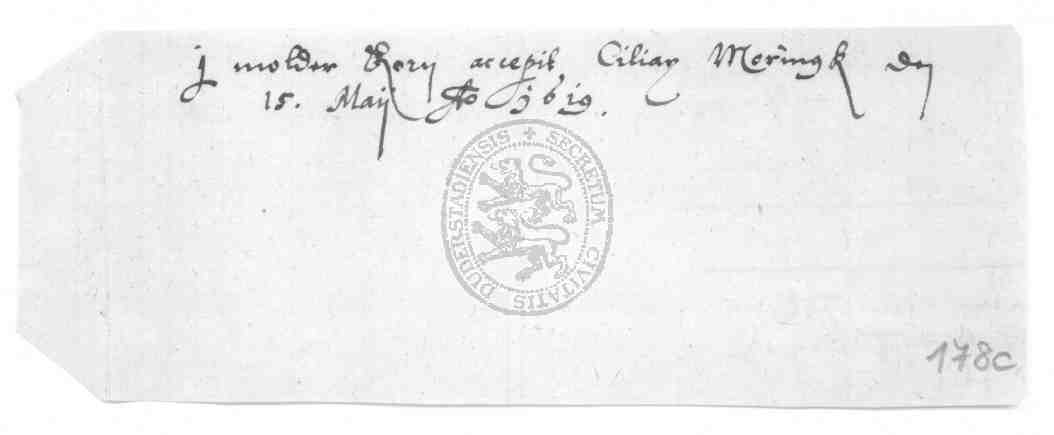 j molder Korn accepit Ciliax Meringk den
15. Maij Ao j619.
SECRETUM CIVITATIS DUDERSTADIENSIS
178c